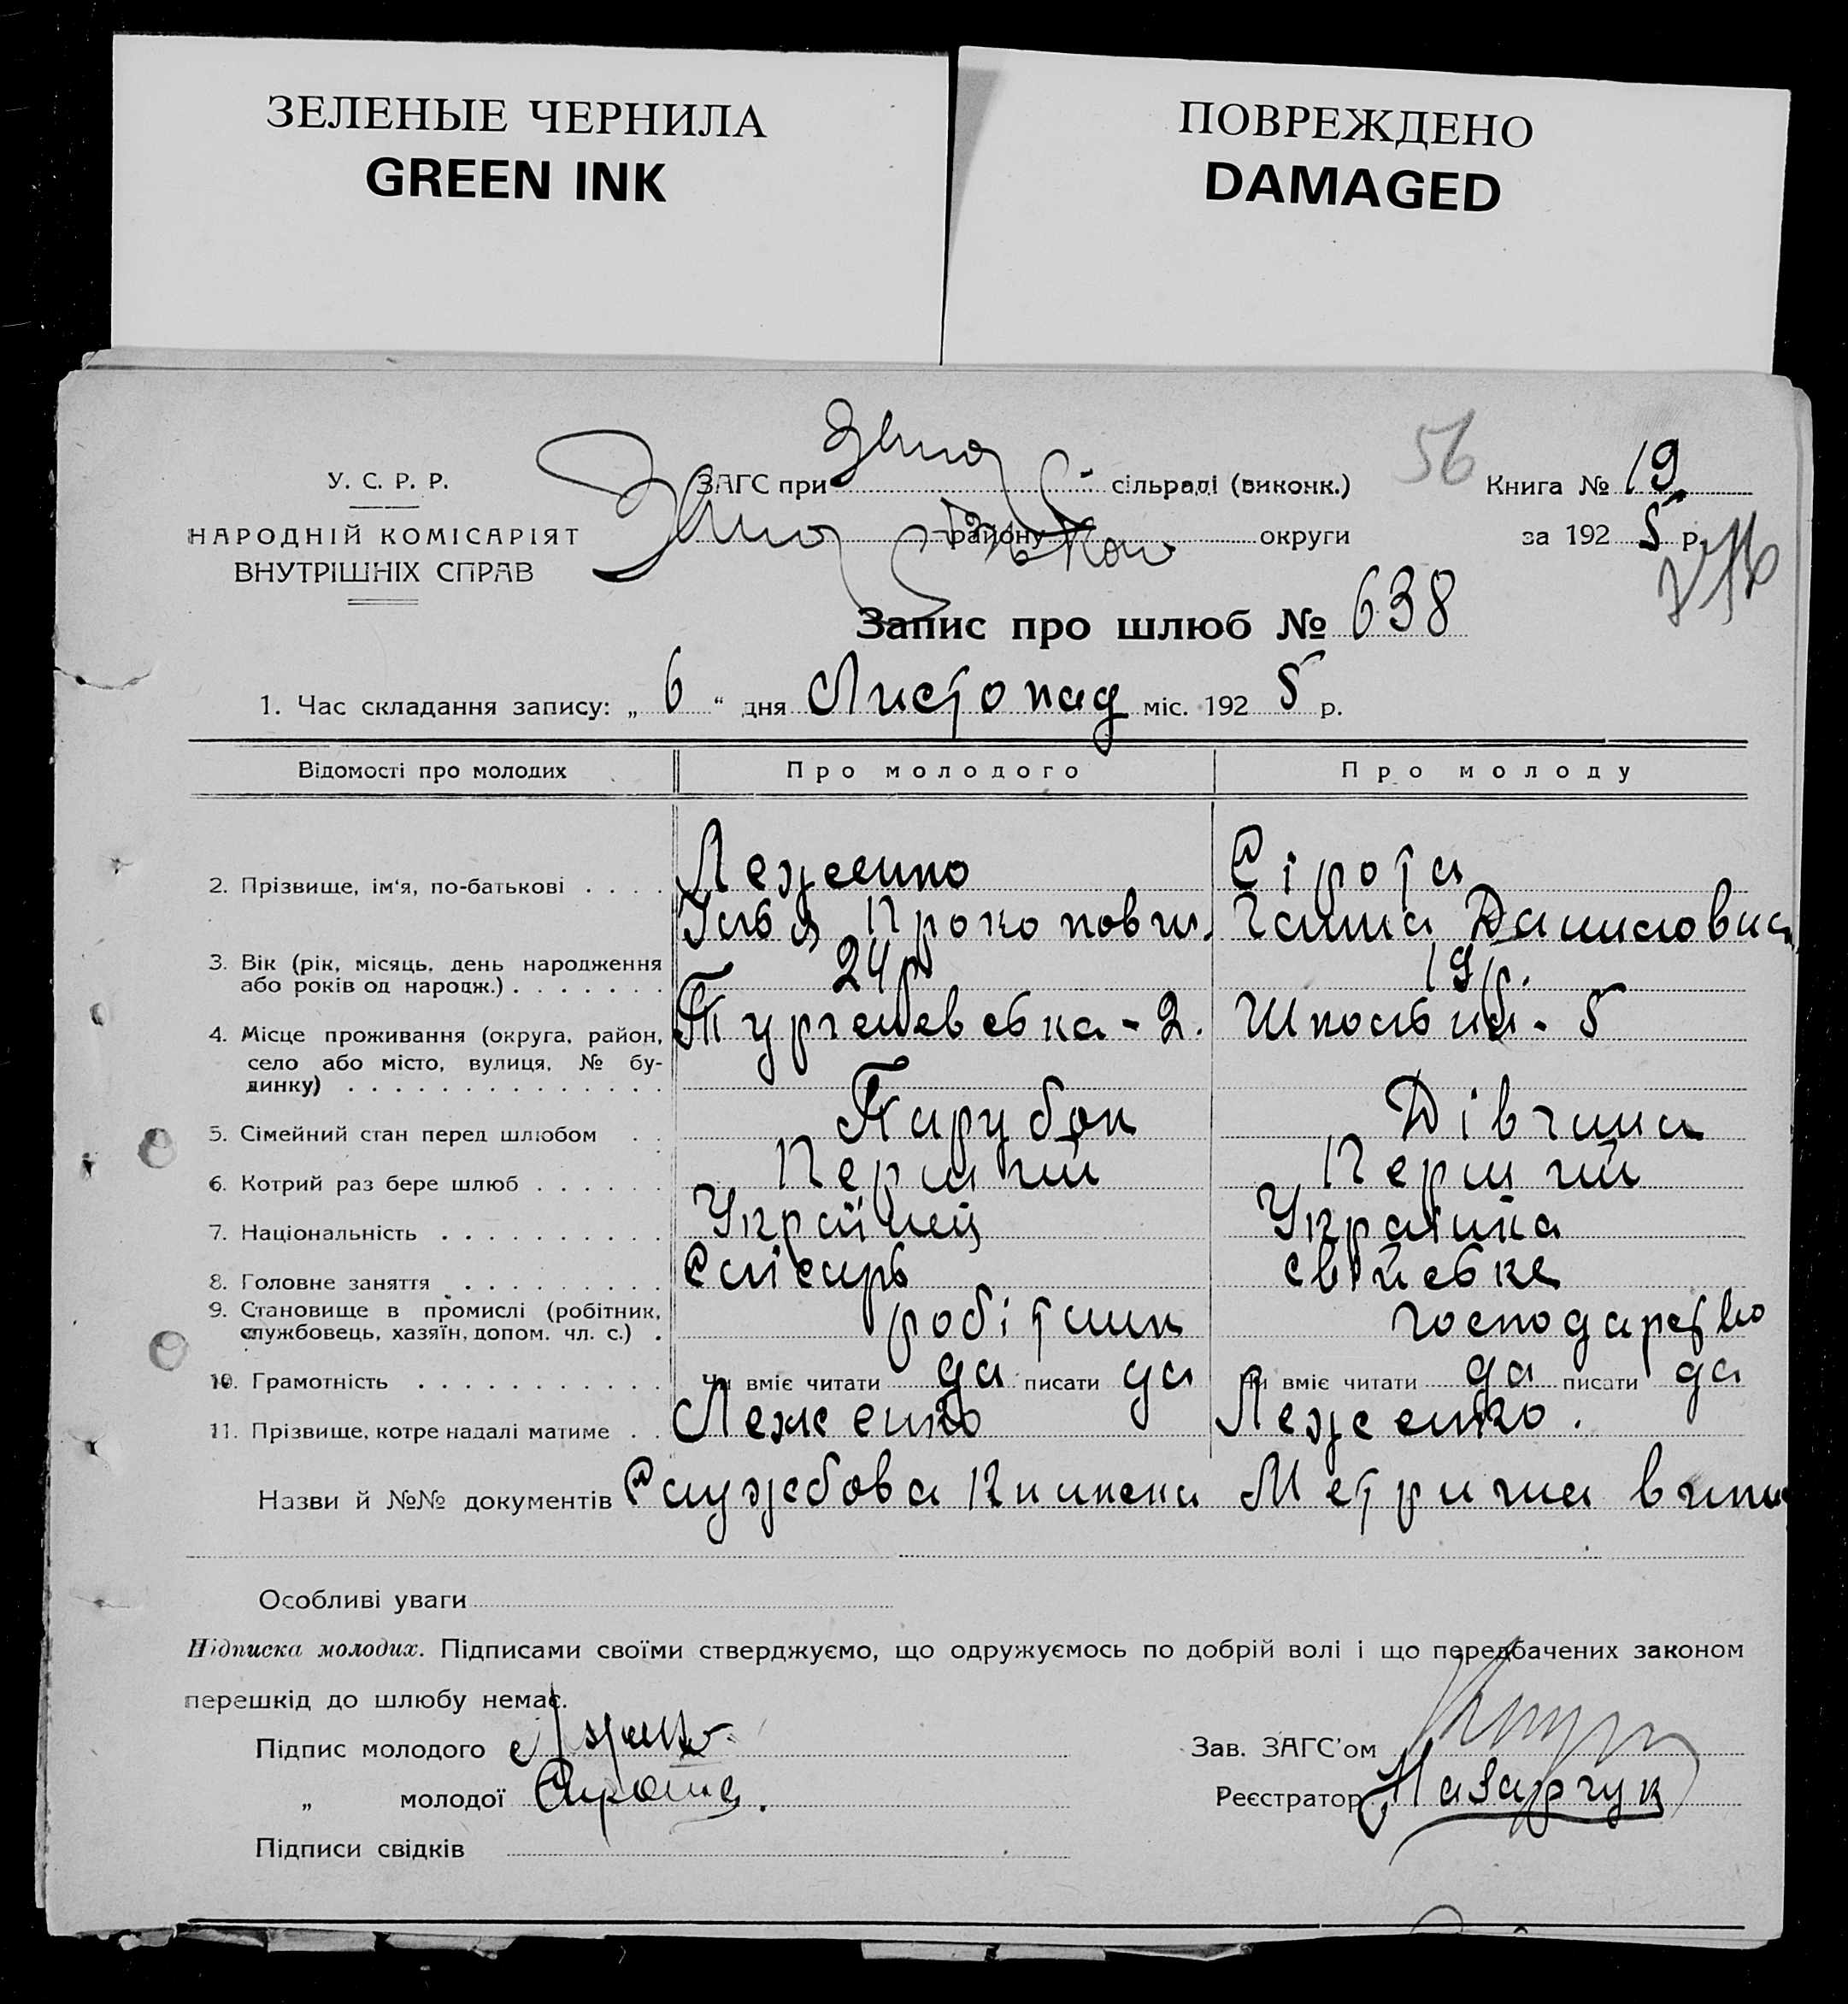 ЗЕЛЕНЫЕ ЧЕРНИЛА
GREEN INK
ПОВРЕЖДЕНО
DAMAGED
56
У. С. Р. Р.
НАРОДНІЙ КОМІСАРІЯТ
ВНУТРІШНІХ СПРАВ
ЗАГС при сільраді (виконк.)
району округи
Книга № 19
за 192 5 р.
Запис про шлюб № 638
1. Час складання запису: „ 6 “ дня Листопад міс. 192 5 р.
Відомості про молодих Про молодого Про молоду
2. Прізвище, ім‘я, по-батькові . . . . Леженко Сірота
Ілья Прокопович. Ганна Даниловна
3. Вік (рік, місяць, день народження
або років од народж.) . . . . . . . 24 р 19 р.
4. Місце проживання (округа, район,
село або місто, вулиця, № бу-
динку) . . . . . . . . . . . . . . Тургеневська - 2. Школьна - 5
5. Сімейний стан перед шлюбом . . Парубок Дівчина
6. Котрий раз бере шлюб . . . . . . Перший Перший
7. Національність . . . . . . . . . . Українец Українка
8. Головне заняття . . . . . . . . . Слісарь свійське
9. Становище в промислі (робітник,
службовець, хазяїн, допом. чл. с.) . робітник господарство
10. Грамотність . . . . . . . . . . . Чи вміє читати да писати да Чи вміє читати да писати да
11. Прізвище, котре надалі матиме . . Леженко Леженко.
Назви й №№ документів Службова Книжка Метрична
Особливі уваги
Підписка молодих. Підписами своїми стверджуємо, що одружуємось по добрій волі і що передбачених законом
перешкід до шлюбу немає.
Підпис молодого
„ молодої Сирота.
Підписи свідків
Зав. ЗАГС’ом
Реєстратор Назарчук